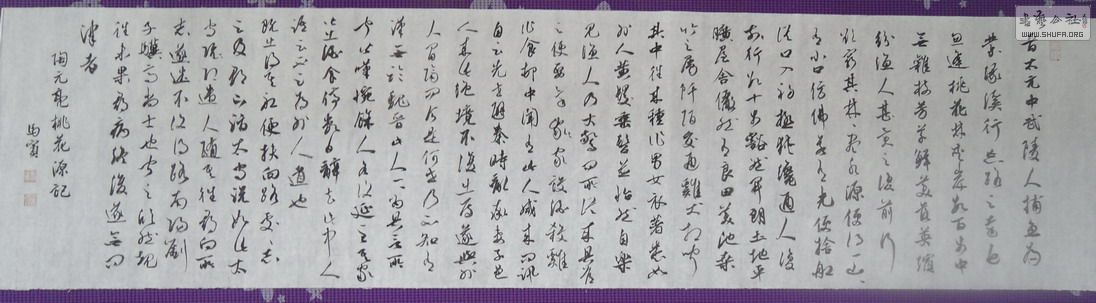 晋太元中武陵人捕鱼为
業缘溪行忘路之遠近
忽逢桃花林夹岸数百步中
無雜樹芳草鲜美落英缤
纷渔人甚異之復前行
欲窮其林林尽水源便得一山
有小口仿佛若有光便捨船
從口入初極狭纔通人復
前行数十步豁然開朗土地平
曠屋舍儼然有良田美池桑
竹之属阡陌交通雞犬相聞
其中往来種作男女衣著悉如
外人黄髮垂髫並怡然自樂
見漁人乃大驚問所從来具答
之便要還家設酒殺雞
作食村中聞有此人咸来問訊
自云先世避秦時乱率妻子邑
人来此绝境不復出焉遂與外
人間隔問今是何世乃不知有
漢無論魏晋此人一一為具言所
聞皆嘆惋餘人各復延至其家
皆出酒食停数日辭去此中人
語云不足為外人道也
既出得其船便扶向路處處志
之及郡下詣太守說如此太
守即遣人隨其往尋向所
志遂迷不復得路南陽劉
子驥高尚士也聞之欣然規
往未果尋病終後遂無問
津者
陶元亮桃花源記
書藝公社
WWW.SHUFA.ORG